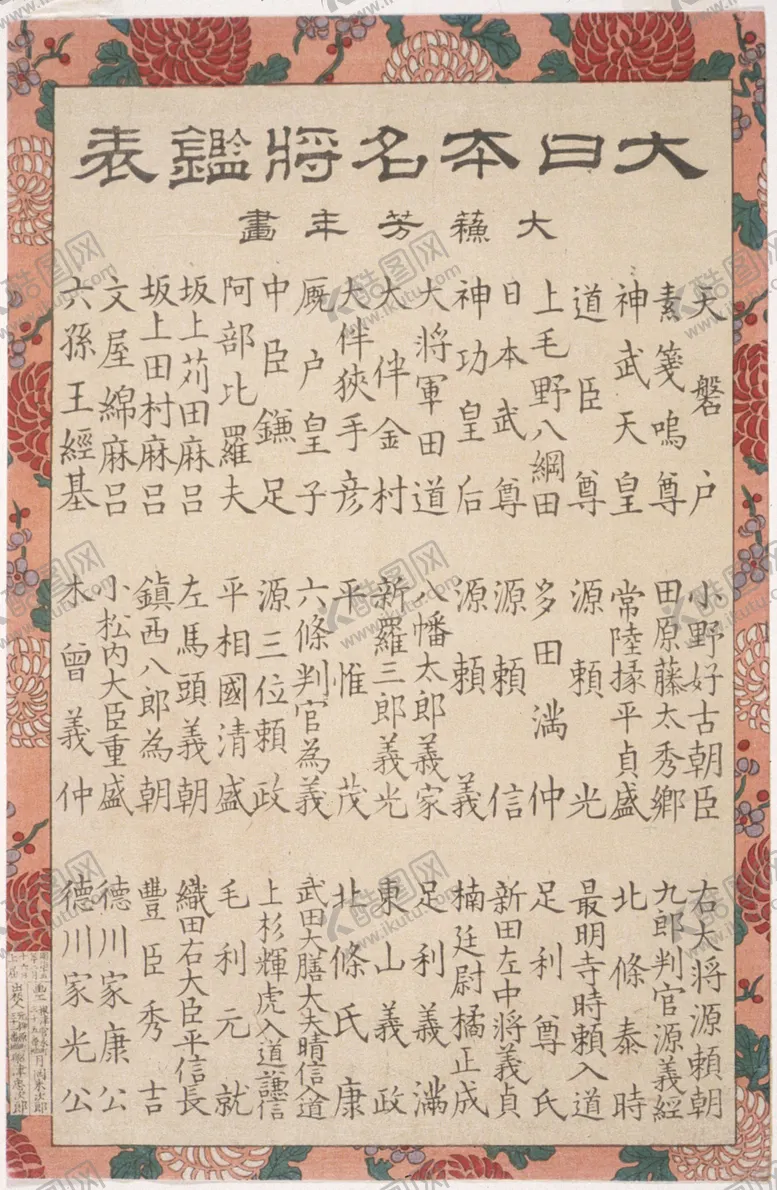 大日本名将鑑表
大蘓芳年畫
天磐户
素箋嗚尊
神武天皇
道臣尊
上毛野八綱田
日本武尊
神功皇后
大将軍田道
大伴金村
大伴狹手彦
厩户皇子
中臣鎌足
阿部比羅夫
坂上苅田麻呂
坂上田村麻呂
文屋綿麻呂
六孫王經基
小野好古朝臣
田原藤太秀郷
常陸掾平貞盛
源頼光
多田満仲
源頼信
源頼義
八幡太郎義家
新羅三郎義光
平惟茂
六條判官為義
源三位頼政
平相國清盛
左馬頭義朝
鎮西八郎為朝
小松内大臣重盛
木曾義仲
右大将源頼朝
九郎判官源義經
北條泰時
最明寺時頼入道
足利尊氏
新田左中将義貞
楠廷尉橘正成
足利義満
東山義政
北條氏康
武田大膳大夫晴信入道
上杉輝虎入道謙信
毛利元就
織田右大臣平信長
豐臣秀吉
德川家康公
德川家光公
月岡米次郎
出板人
津忠次郎
酷图网
www.ikutu.com